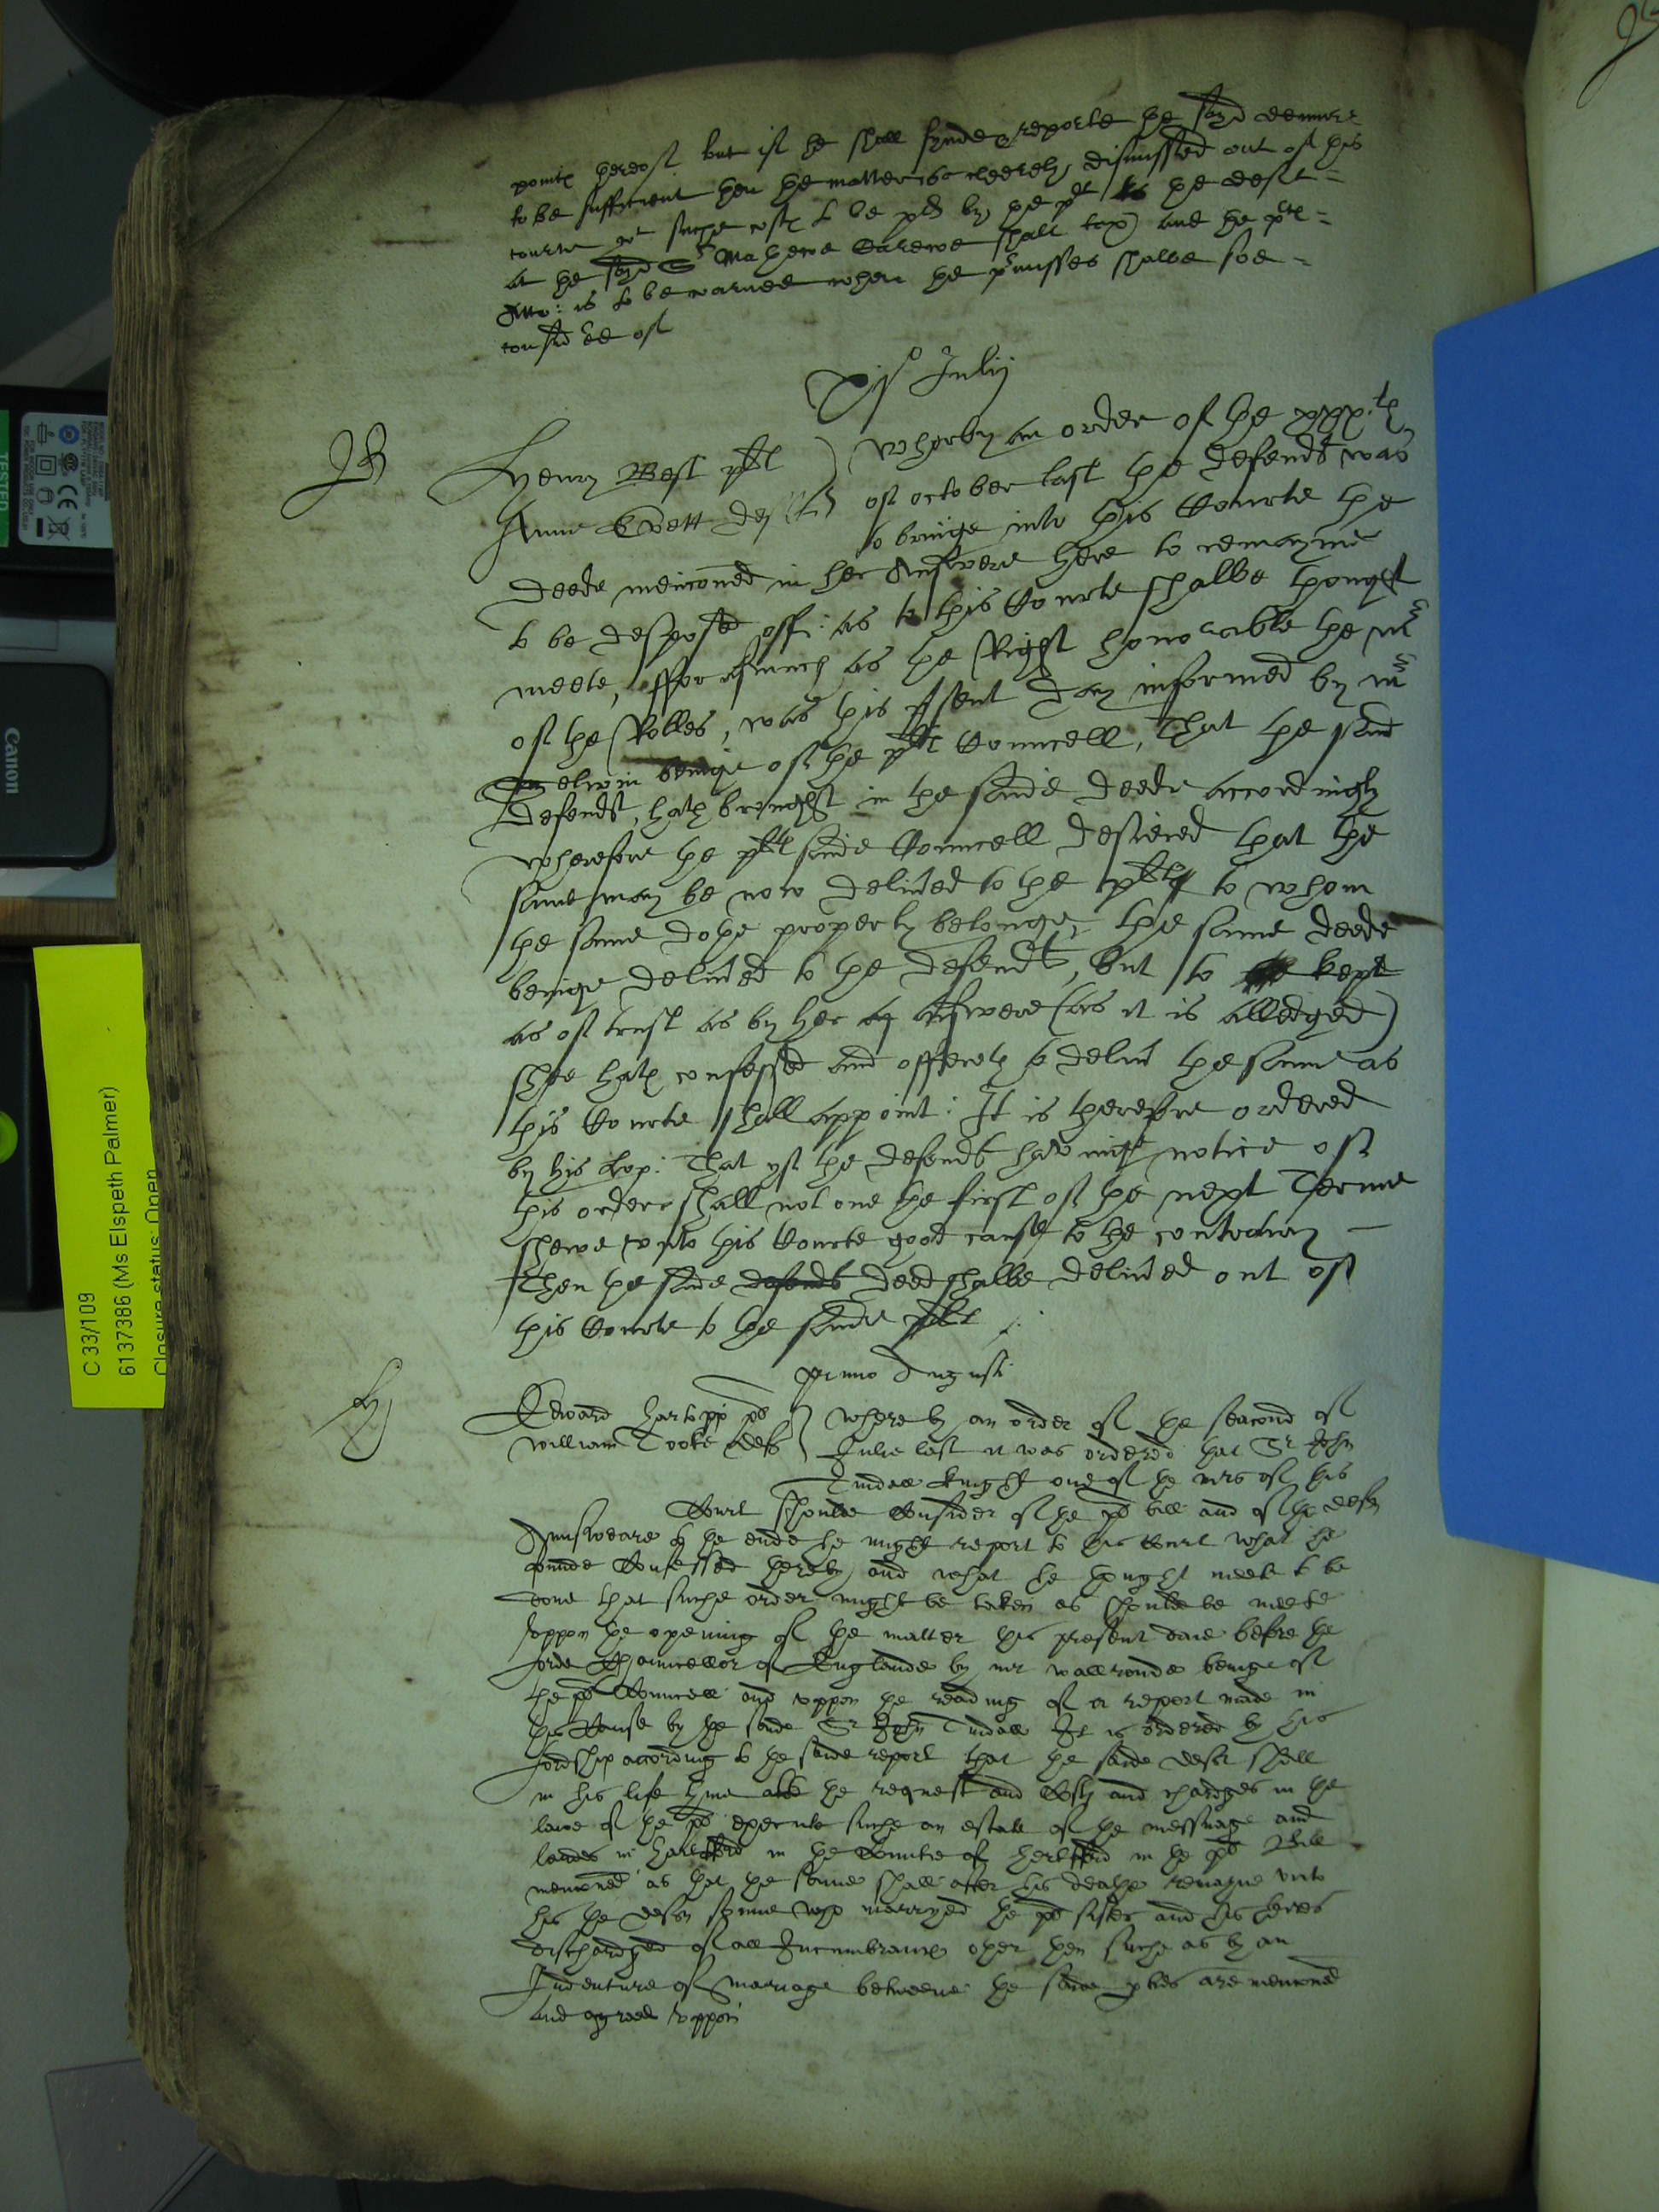 pointes thereof. but if he shall fynde & reporte the sayd demurr=
to be sufficient then the matter is cleerely dismissed out of this
courte wth suche costs to be pd by the plt to the deft=
as the sayd Sr Mathewe Carewe shall tax and the plts=
Atto: is to be warned when the pmisses shalbe soe=
considred of
xjo Julij
Henry West plt
Anne Evett deft
Wherby an order of the xxxth
of october last the defendt was
to bringe into this Courte the
deede menconed in her Answere here to remayne
to be disposed off: as to this Courte shalbe thought
meete, fforasmuch as the Right honorable the mr
of the Rolles, was this psent day informed by mr
beinge of the plts Councell, That the said
defendt, hath broughte in the saide deede accordingly
Wherefore the plts saide Councell desiered that the
same may be now delived to the plt to whom
the same dothe properly belonge, the same deede
beinge delived to the defendt, but to kept
as of trust as by her answere (as it is alledged)
shee hath confessed and offereth to deliv the same as
this Courte shall appoint: It is therefore ordered
by his Lop: That yf the defendt havinge notice of
this order shall not one the first of the next Terme
shewe vnto this Courte good cause to the contrary
Then the saide defendt deed shalbe delived out of
this Courte to the saide plt
primo Augusti
Edward Hartopp pl
William Tooke def
Where by an order of the seacond of
Julie last it was ordered that Sr John
Tindall knight one of the mrs of this
Court shoulde Consider of the pl bill and of the defts
Aunsweare to the ende he might report to this Court what he
founde Confessed thereby, and what he thought meete to be
done that suche order might be taken as shoulde be meete
Vppon the opening of the matter this present daie before the
Lorde Chauncellor of Englande by mr wallronde beinge of
the pl Councell and vppon the reading of a report made in
this Cause by the saide Sr John Tindall It is ordered by his
Lordship according to the saide report that the saide deft shall
in his life tyme att the request and Costs and chardges in the
lawe of the pl execute suche an estate of the messuage and
landes in hartfford in the Countie of hertfford in the pl Bill
mencioned as that the same shall after his deathe remayne vnto
his the defts sonne who marryed the pl sister and his heires
dischardged of all Incumbrances other then suche as by an
Indenture of Mariage betweene the saide pties are mencioned
and agreed vppon
C 33/109
6137386 (Ms Elspeth Palmer)
Closure status: Open
Canon
TESTED